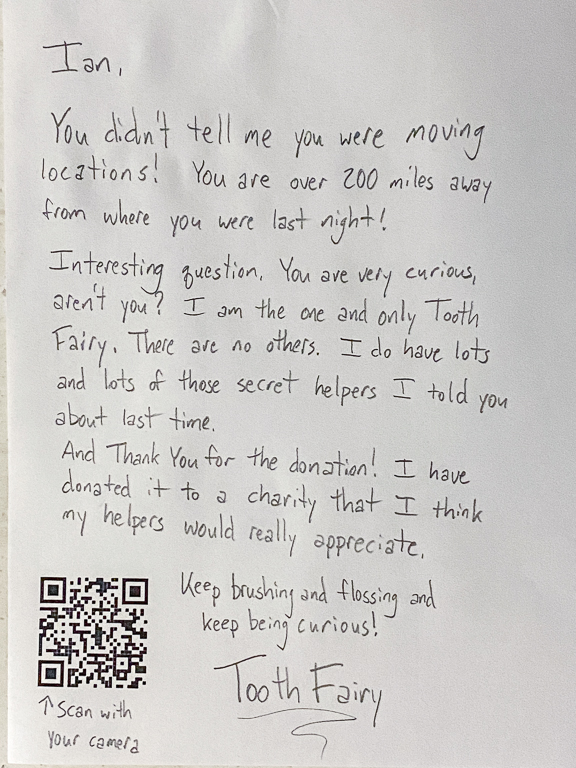 Ian,
You didn't tell me you were moving
locations! You are over 200 miles away
from where you were last night!
Interesting question. You are very curious,
aren't you? I am the one and only Tooth
Fairy. There are no others. I do have lots
and lots of those secret helpers I told you
about last time.
And Thank You for the donation! I have
donated it to a charity that I think
my helpers would really appreciate.
Keep brushing and flossing and
keep being curious!
Tooth Fairy
↑ Scan with
your camera